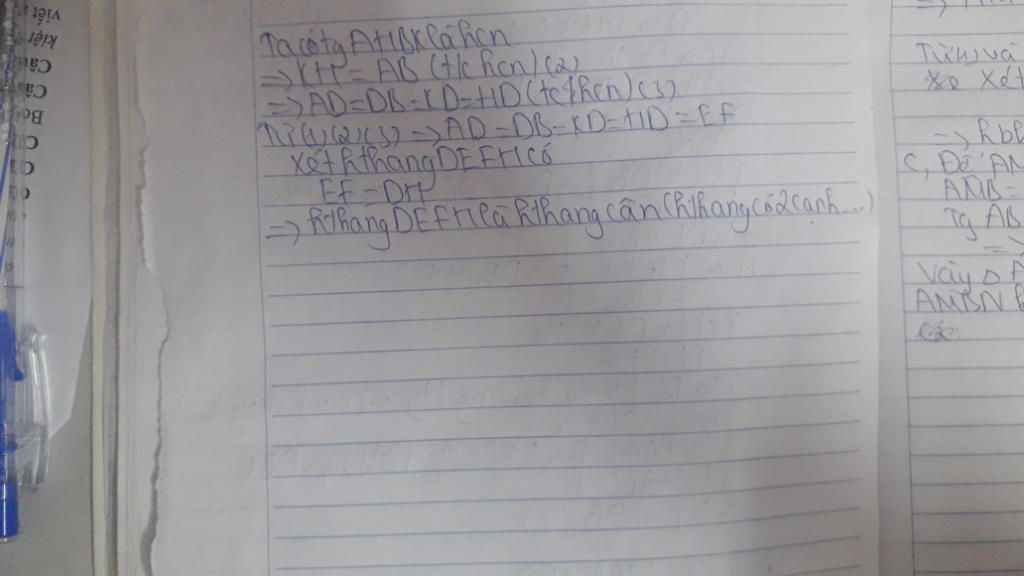 Ta có tg AHBK là hcn
=> KH = AB (t/c hcn) (2)
=> AD = DB = KD = HD (tc hcn) (3)
Từ (1) (2) (3) => AD = DB = KD = HD = EF
Xét hthang DEFH có
EF = DH
=> hthang DEFH là hthang cân (hthang có 2 cạnh ...)
Từ (1) và
Xét
=> hbh
C, Để AM
AMB =
Tg AB
=>
Vậy Δ A
AMBN